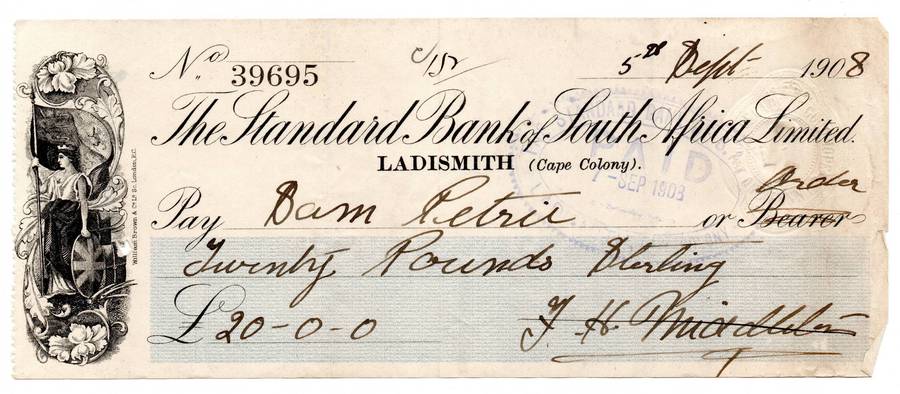 No. 39695 c/152 5th Sept 1908
The Standard Bank of South Africa Limited.
LADISMITH (Cape Colony).
PAID
7-SEP 1908
Order
Pay Dam Petrie or Bearer
Twenty Pounds Sterling
£20-0-0 F. H. Middleton
William Brown & Co Ld Sc. London, E.C.